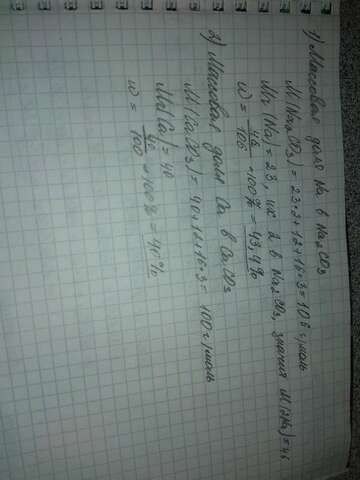 1) Массовая доля Na в Na2CO3
M(Na2CO3) = 23·2+12+16·3 = 106 г/моль
Mr(Na) = 23, их 2 в Na2CO3, значит M(2Na) = 46
w = 46/106 · 100% = 43,4%
2) Массовая доля Ca в CaCO3
M(CaCO3) = 40+12+16·3 = 100 г/моль
Mr(Ca) = 40
w = 40/100 · 100% = 40%